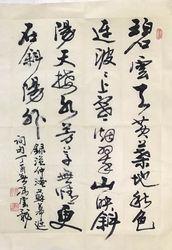 碧雲天黄葉地秋色
連波々上寒烟翠山映斜
陽天接水芳草無情更
在斜陽外
錄范仲淹蘇幕遮
詞句丁亥